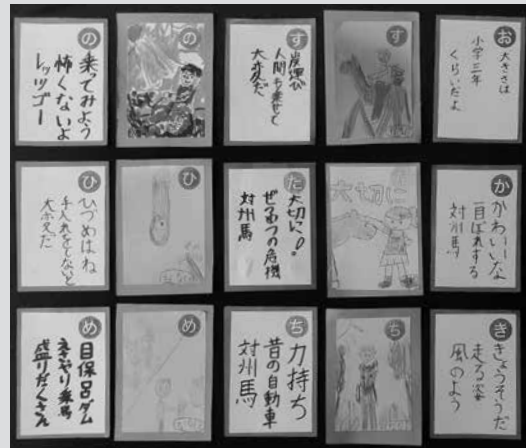 の
乗ってみよう
怖くないよ
レッツゴー
の
す
炭運び
人間も乗せて
大変だ
す
お
大きさは
小学三年
くらいだよ
ひ
ひづめはね
手入れをしないと
大変だ
ひ
た
大切に!
ぜつめつの危機
対州馬
大切に
か
かわいいな
一目ぼれする
対州馬
め
目保呂ダム
えさやり乗馬
盛りだくさん
め
ち
力持ち
昔の自動車
対州馬
ち
き
きょうそうだ
走る姿
風のよう